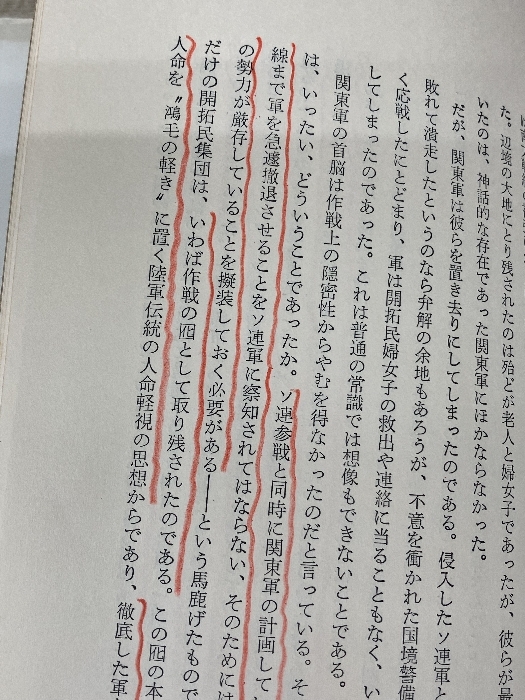 た。辺境の大地にとり残されたのは殆どが老人と婦女子であったが、彼らが最
いたのは、神話的な存在であった関東軍にほかならなかった。
だが、関東軍は彼らを置き去りにしてしまったのである。侵入したソ連軍と
敗れて潰走したというのなら弁解の余地もあろうが、不意を衝かれた国境警備
く応戦したにとどまり、軍は開拓民婦女子の救出や連絡に当ることもなく、い
してしまったのであった。これは普通の常識では想像もできないことである。
関東軍の首脳は作戦上の隠密性からやむを得なかったのだと言っている。そ
は、いったい、どういうことであったか。ソ連参戦と同時に関東軍の計画して
線まで軍を急遽撤退させることをソ連軍に察知されてはならない、そのためには
の勢力が厳存していることを擬装しておく必要がある――という馬鹿げたもので
だけの開拓民集団は、いわば作戦の囮として取り残されたのである。この囮の本
人命を〝鴻毛の軽き〟に置く陸軍伝統の人命軽視の思想からであり、徹底した軍